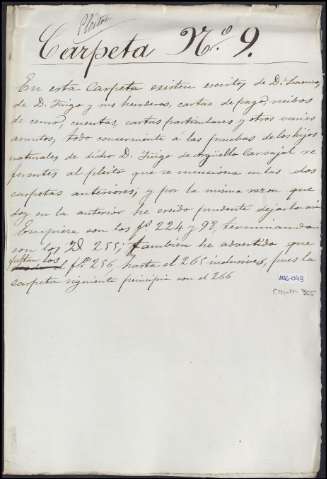 Pleitos
Carpeta N.º 9.
En esta Carpeta existen escritos de D.
de D. Iñigo y sus herederos, cartas de pago, recibos
de censos, cuentas, cartas particulares y otros varios
asuntos, todo concerniente a las pruebas de los hijos
naturales de dicho D. Iñigo de Argüello Carvajal re
ferentes al pleito que se menciona en las dos
carpetas anteriores; y por la misma razon que
doy en la anterior he creido prudente dejarlo asi
Empieza con los fº 224 y 98, terminando
con los 255; tambien he advertido que
faltan los fº 256, hasta el 265 inclusives, pues la
carpeta siguiente principia con el 266